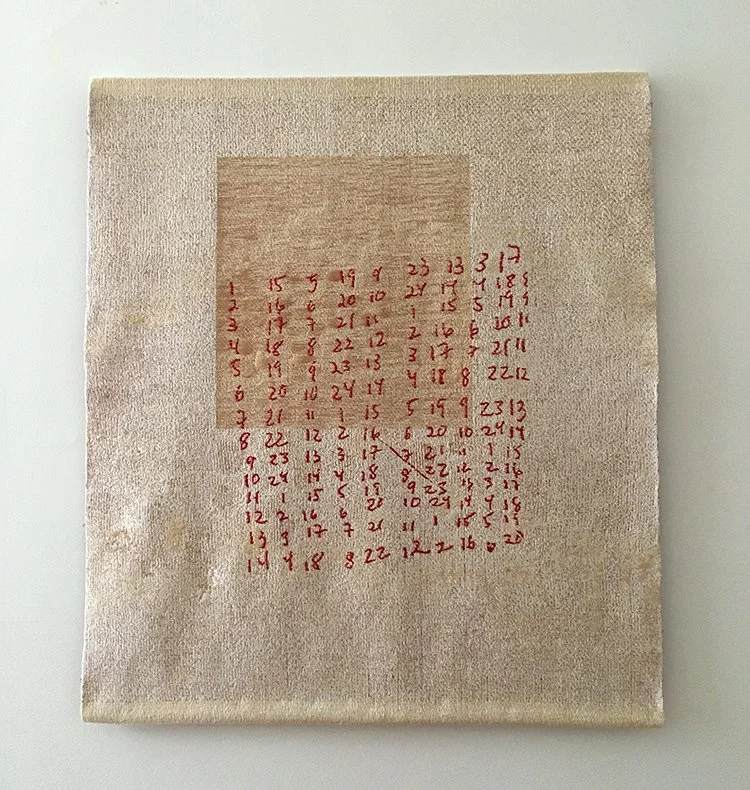 1 15 5 19 9 23 13 3 17
2 16 6 20 10 24 14 4 18 8
3 17 7 21 11 1 15 5 19 9
4 18 8 22 12 2 16 6 20
5 19 9 23 13 3 17 7 21 11
6 20 10 24 14 4 18 8 22 12
7 21 11 1 15 5 19 9 23 13
8 22 12 2 16 6 20 10 24 14
9 23 13 3 17 7 21 11 1 15
10 24 14 4 18 8 22 12 2 16
11 1 15 5 19 9 23 13 3 17
12 2 16 6 20 10 24 14 4 18
13 3 17 7 21 11 1 15 5 19
14 4 18 8 22 12 2 16 20